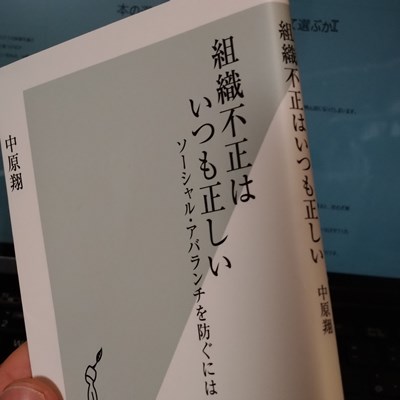 組織不正は
いつも正しい
ソーシャル・アバランチを防ぐには
中原翔
組織不正はいつも正しい
中原翔
選ぶか